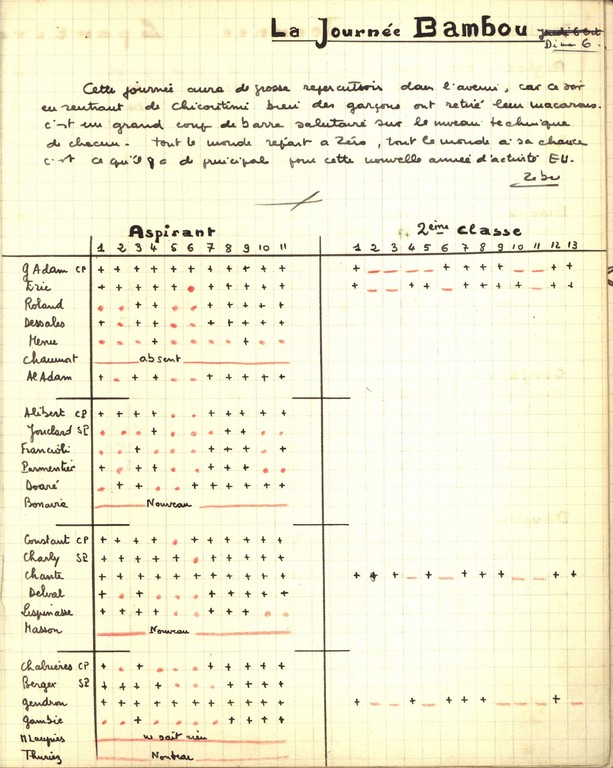 La Journée Bambou Jeudi 6 Oct
Dim 6.
Cette journée aura de grosse repercutsion dans l'avenir, car ce soir
en rentrant de Chicoutimi bien des garçons ont retiré leur macarons.
c'est un grand coup de barre salutaire sur le niveau technique
de chacun. tout le monde repart a Zéro, tout le monde a sa chance
c'est ce qu'il y a de principal pour cette nouvelle année d'activité EU.
Zebu
Aspirant 2ème Classe
1 2 3 4 5 6 7 8 9 10 11 1 2 3 4 5 6 7 8 9 10 11 12 13
g Adam CP + + + + + + + + + + + + – – – – + + + + – – + +
Eric + + + + + • + + + + + + – – + + – + + + + – + +
Roland • • + + • • + + + + +
Dessales + • + + • • + + + + +
Menu • • • + • • • • + • •
Chaumont absent
Al Adam + • + + • • + + + + +
Alibert CP + + + + • • + + + + +
Jouclard SP • • • + • • • + + • •
Francioli • • + • • • • + + • +
Parmentier + • + + • • + + + • •
Doaré • + + • • + + + + + +
Bonavie Nouveau
Constant CP + + + + • + + + + + +
Charly SP + + + + + • + + + + +
Chante + + + + + + + + + + + + + + – + – + + + – – + +
Delval + • + + • • + + + + +
Lespinasse + + + + • • + + + • •
Masson Nouveau
Chabrieres CP + • + • • • + + + + +
Berger SP + + + + • • • + + + +
gendron + + + + + + + + + + + + – – + – + + + – – – + –
gambie • • + • • • • + + + +
M Laupiés ne sait rien
Thuriez Nouveau